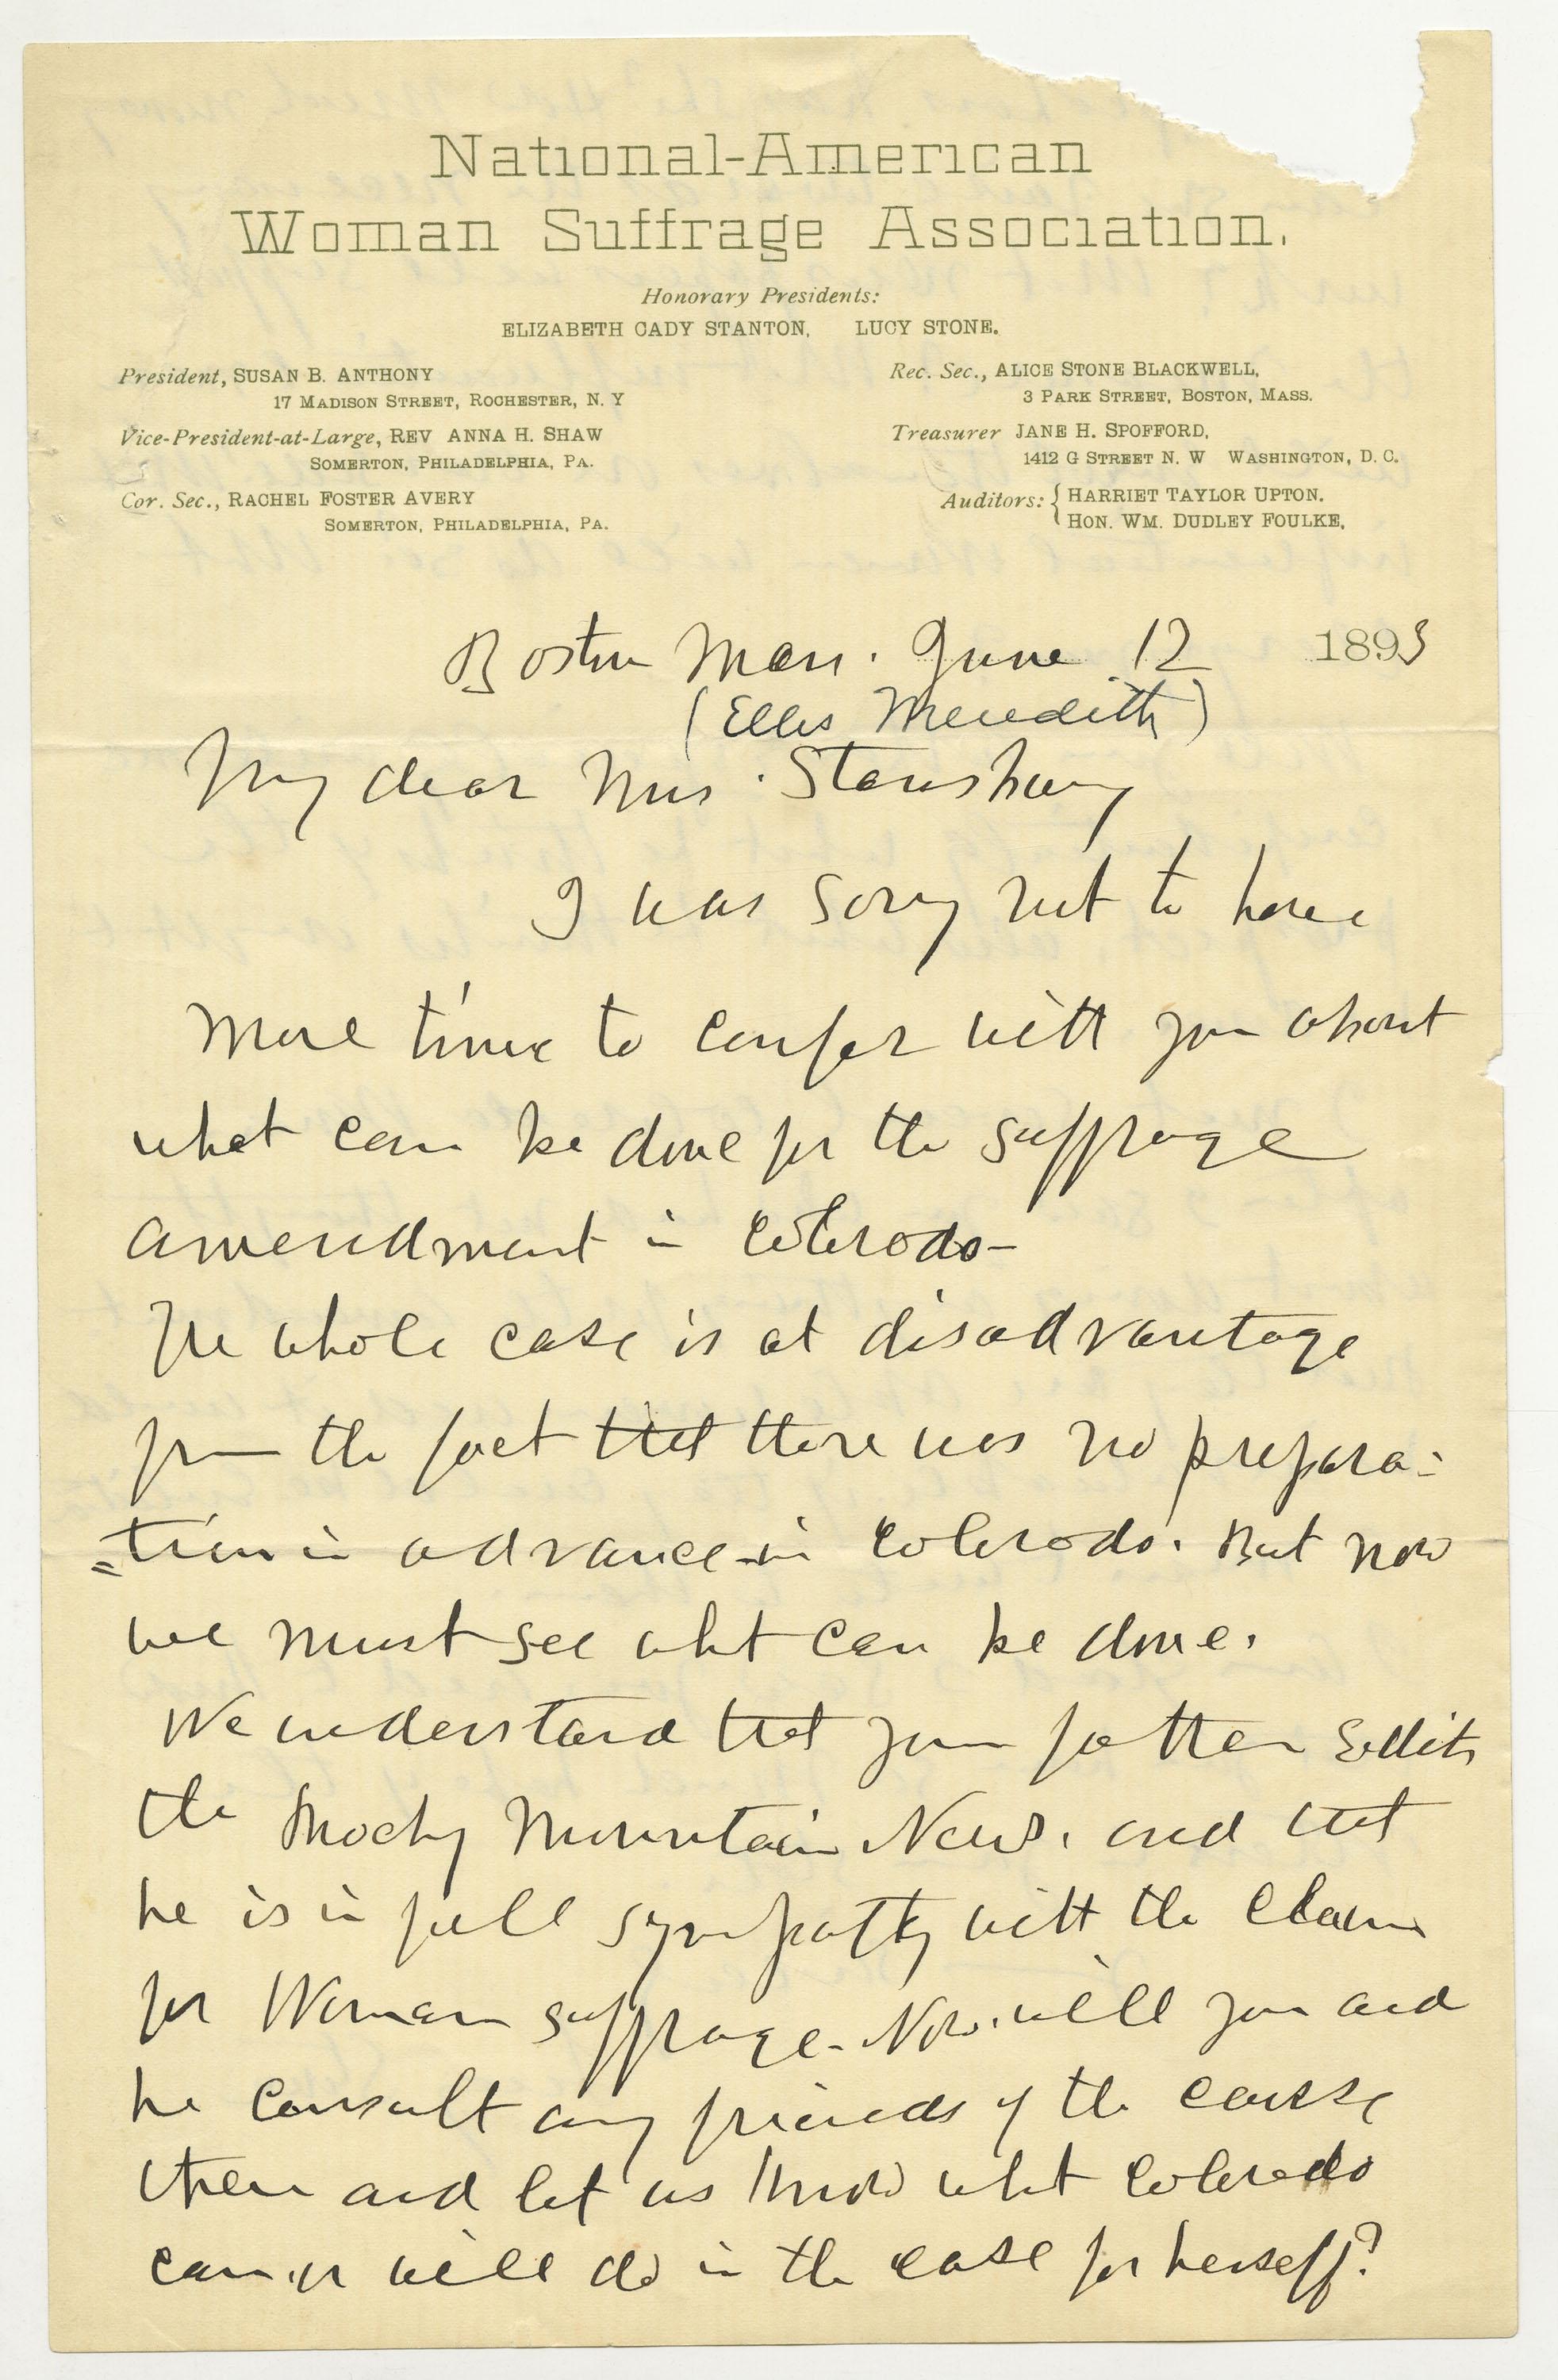 National-American
Woman Suffrage Association.
Honorary Presidents:
ELIZABETH CADY STANTON, LUCY STONE.
President, SUSAN B. ANTHONY
17 MADISON STREET, ROCHESTER, N. Y
Vice-President-at-Large, REV ANNA H. SHAW
SOMERTON, PHILADELPHIA, PA.
Cor. Sec., RACHEL FOSTER AVERY
SOMERTON, PHILADELPHIA, PA.
Rec. Sec., ALICE STONE BLACKWELL,
3 PARK STREET, BOSTON, MASS.
Treasurer JANE H. SPOFFORD,
1412 G STREET N. W WASHINGTON, D. C.
Auditors: { HARRIET TAYLOR UPTON.
HON. WM. DUDLEY FOULKE,
Boston Mass. June 12 1893
(Ellis Meredith)
My dear Mrs. Stansbury
I was sorry not to have
more time to confer with you about
what can be done for the suffrage
amendment in Colorado-
The whole case is at disadvantage
from the fact that there was no prepara=
=tion in advance in Colorado. But now
we must see what can be done.
We understand that your father edits
the Rocky Mountain News, and that
he is in full sympathy with the claim
for Woman suffrage- Now, will you and
he consult any friends of the cause
there and let us know what Colorado
can, or will do in the case for herself?